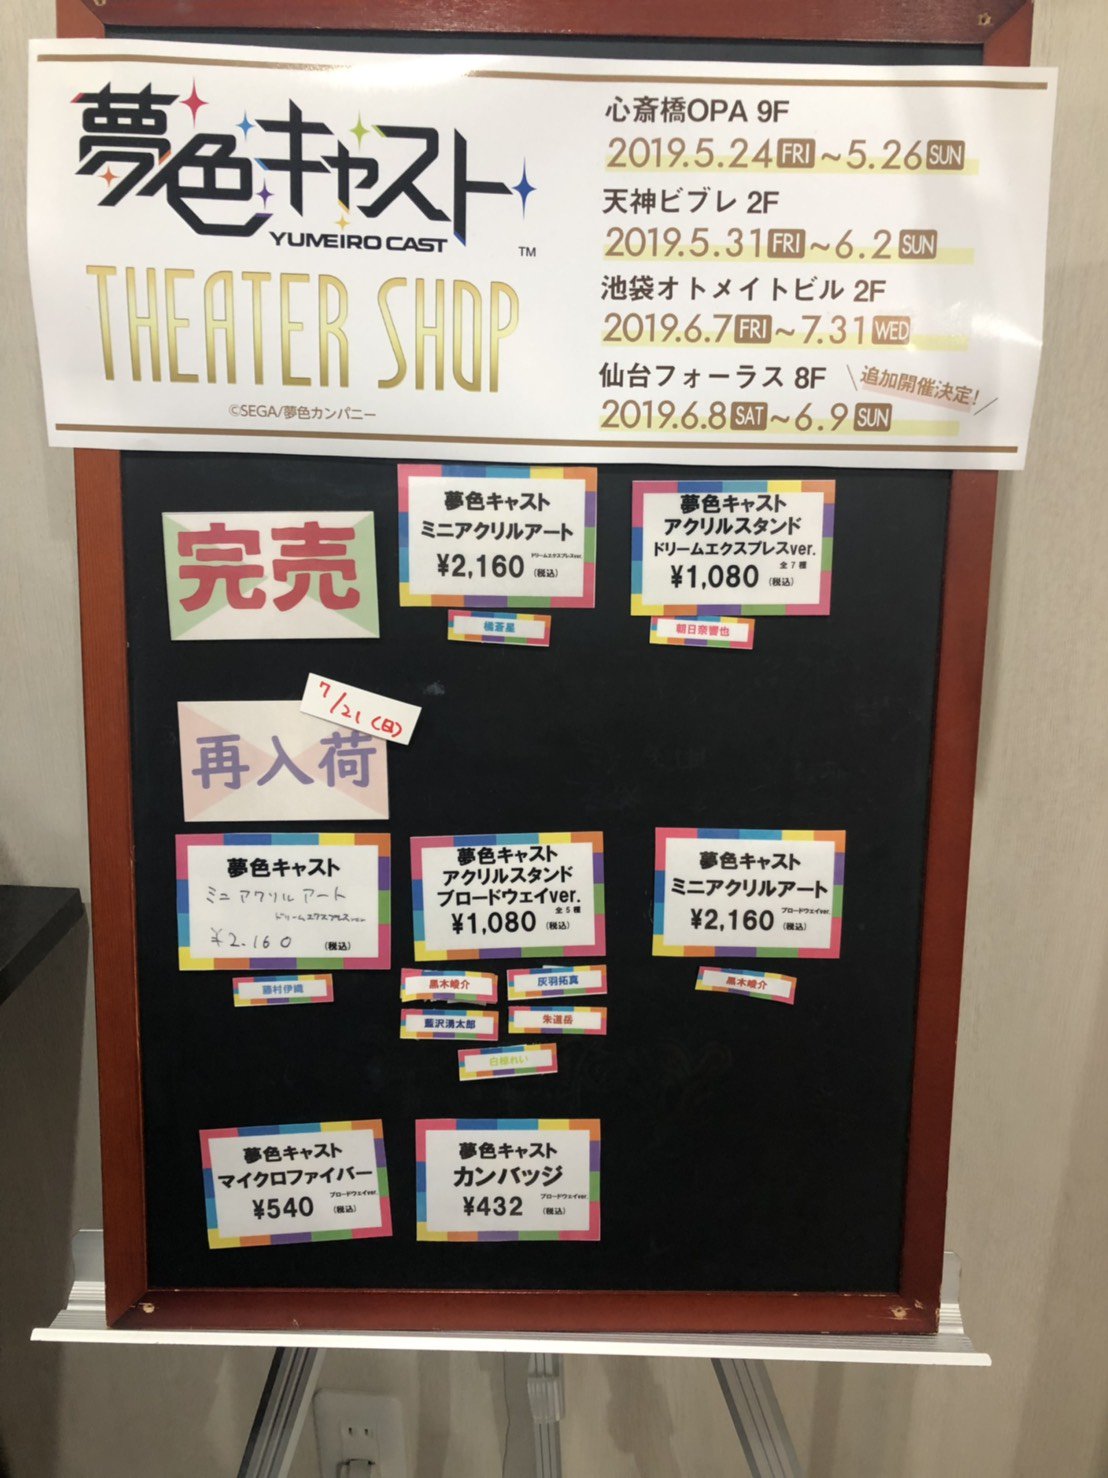 夢色キャスト
YUMEIRO CAST
™
THEATER SHOP
©SEGA/夢色カンパニー
心斎橋OPA 9F
2019.5.24 FRI ~5.26 SUN
天神ビブレ 2F
2019.5.31 FRI ~6.2 SUN
池袋オトメイトビル 2F
2019.6.7 FRI ~7.31 WED
仙台フォーラス 8F
追加開催決定!
2019.6.8 SAT ~6.9 SUN
完売
夢色キャスト
ミニアクリルアート
ドリームエクスプレスver.
¥2,160 (税込)
橘蒼星
夢色キャスト
アクリルスタンド
ドリームエクスプレスver.
全7種
¥1,080 (税込)
朝日奈響也
7/21(日)
再入荷
夢色キャスト
ミニアクリルアート
ドリームエクスプレスver
¥2.160 (税込)
藤村伊織
夢色キャスト
アクリルスタンド
ブロードウェイver.
全5種
¥1,080 (税込)
黒木崚介
灰羽拓真
藍沢湧太郎
朱道岳
白椋れい
夢色キャスト
ミニアクリルアート
ブロードウェイver.
¥2,160 (税込)
黒木崚介
夢色キャスト
マイクロファイバー
ブロードウェイver.
¥540 (税込)
夢色キャスト
カンバッジ
ブロードウェイver.
¥432 (税込)